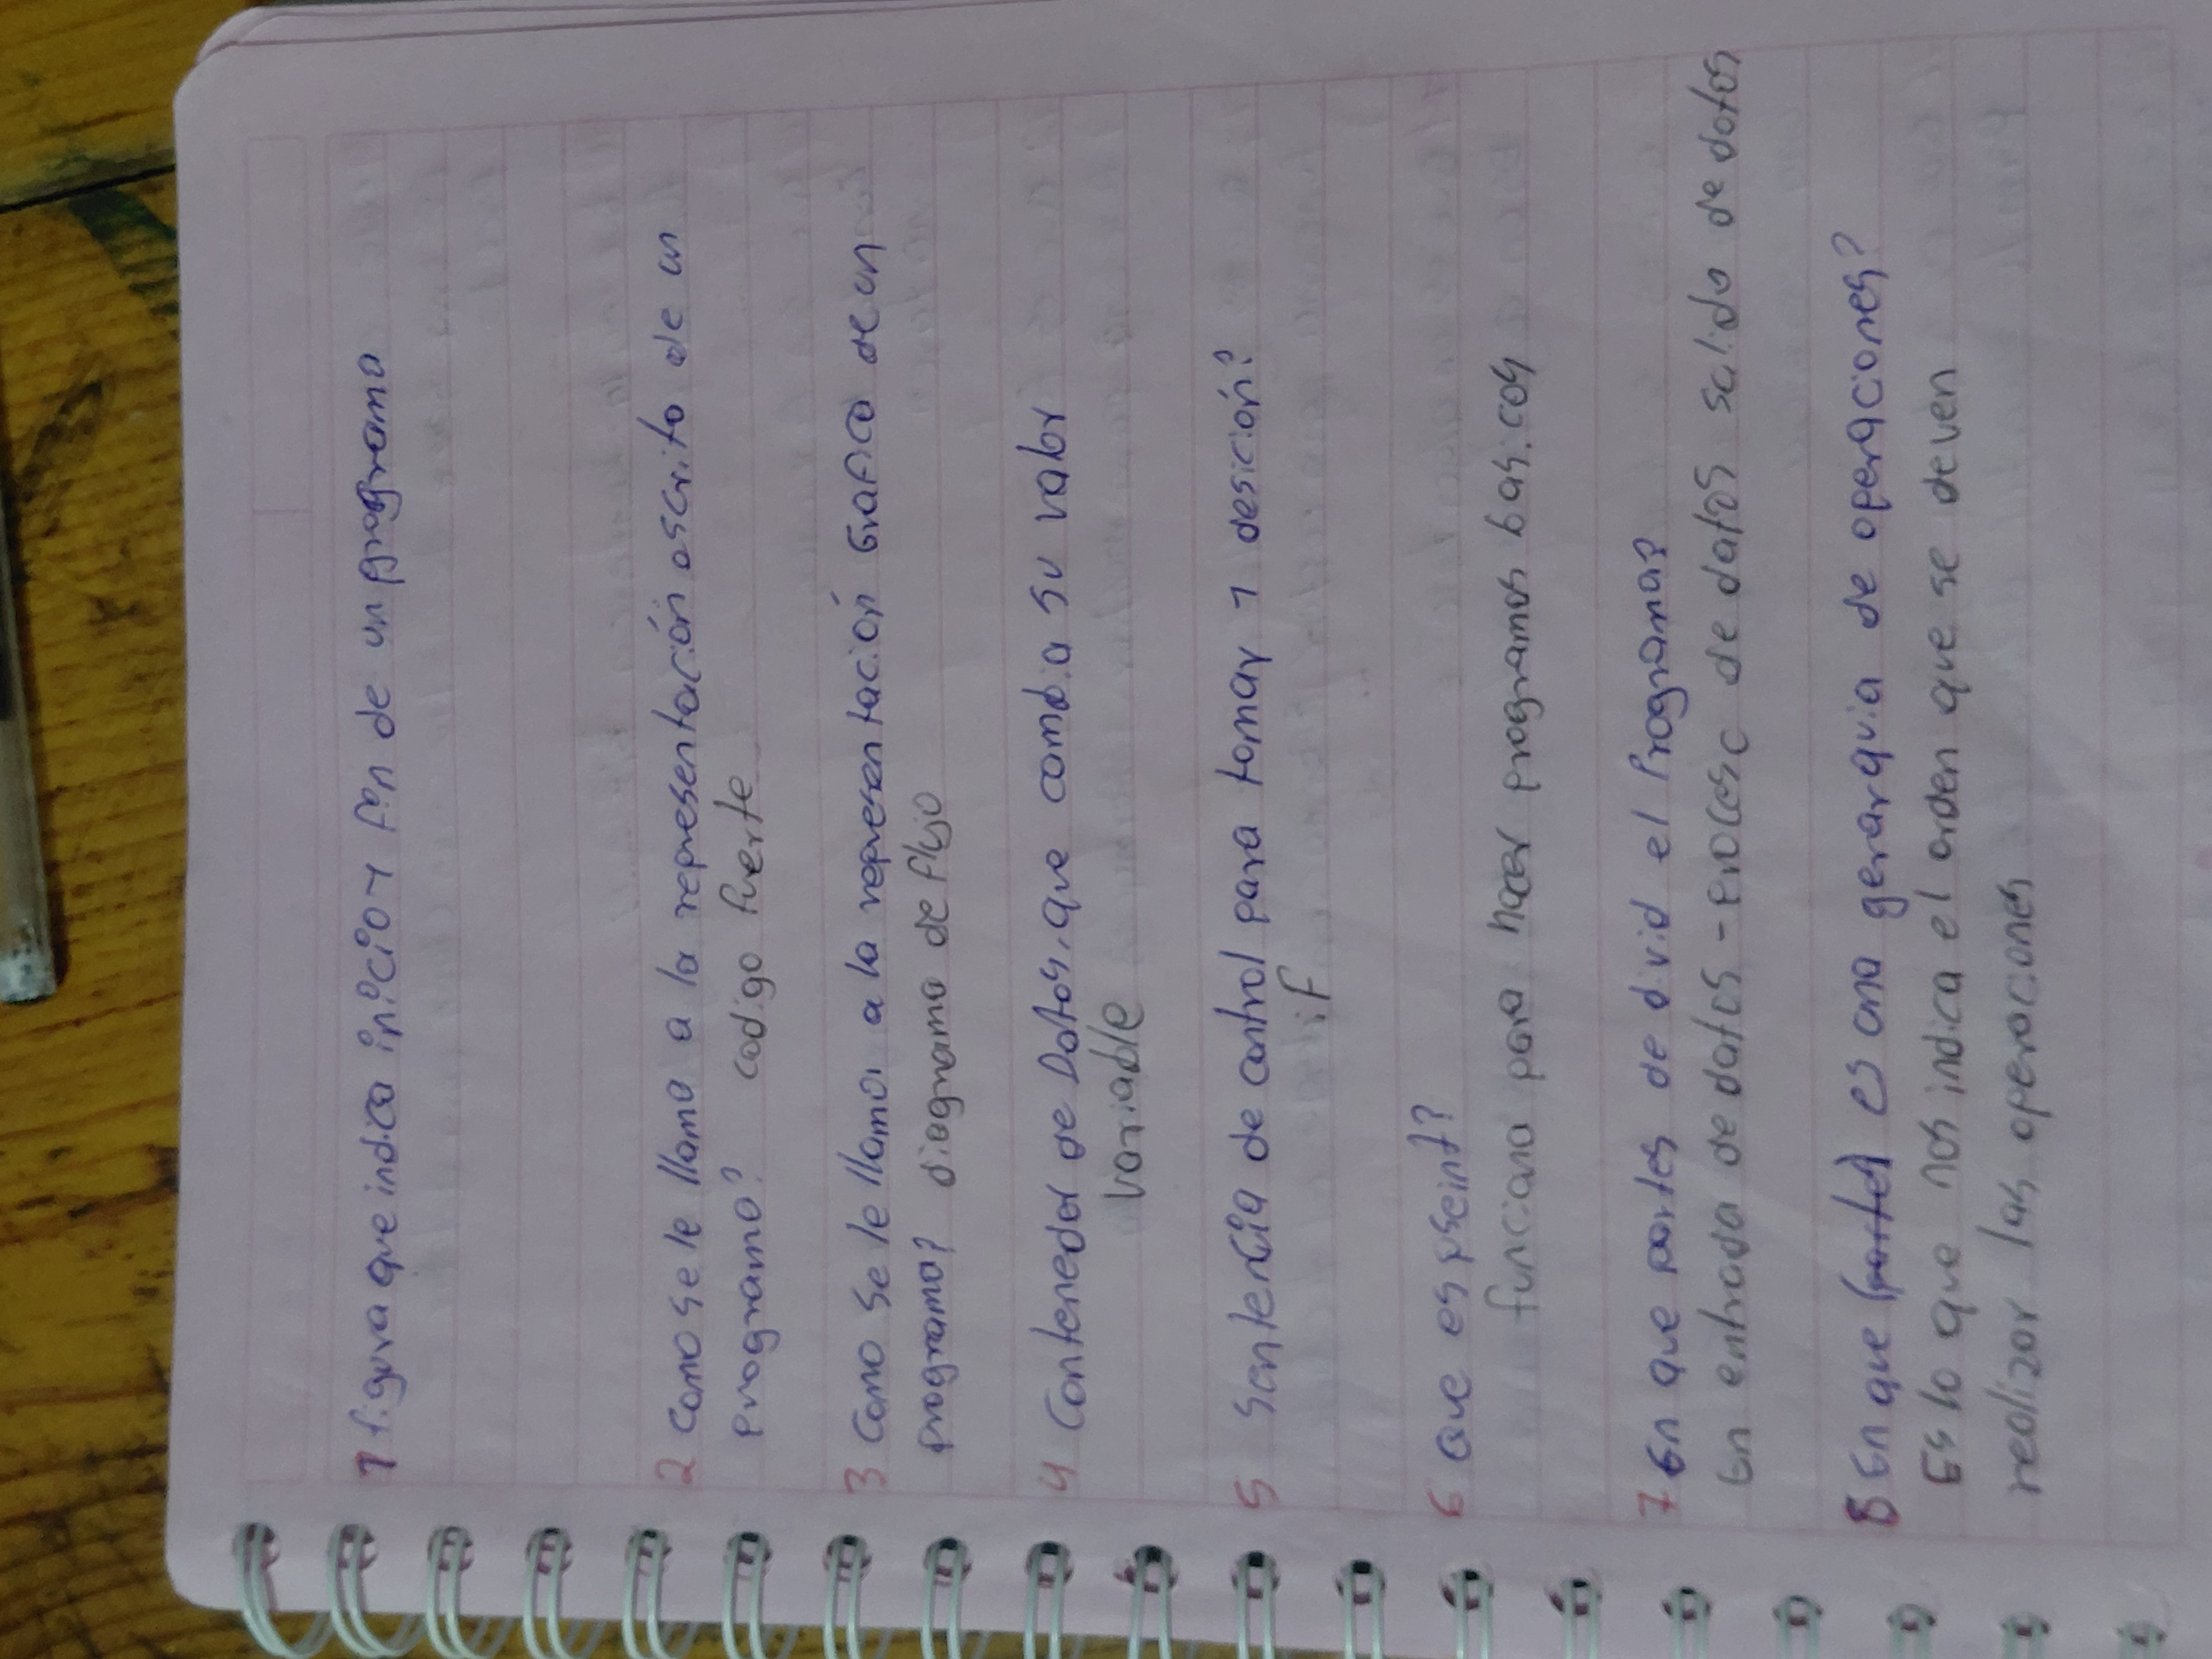 1 figura que indica inicio y fin de un programa
2 como se le llama a la representación escrita de un
programa? codigo fuerte
3 Como se le llama a la representación Grafica de un
programa? diagrama de flujo
4 Contenedor de Datos, que cambia su valor
variable
5 Sentencia de control para tomar 1 desición?
if
6 que es pseint?
funciona para hacer programas basicos
7 En que partes de divid el Programa?
En entrada de datos - proceso de datos salida de datos
8 En que (partes) es una gerarquia de operaciones?
Es lo que nos indica el orden que se deven
realizar las operaciones